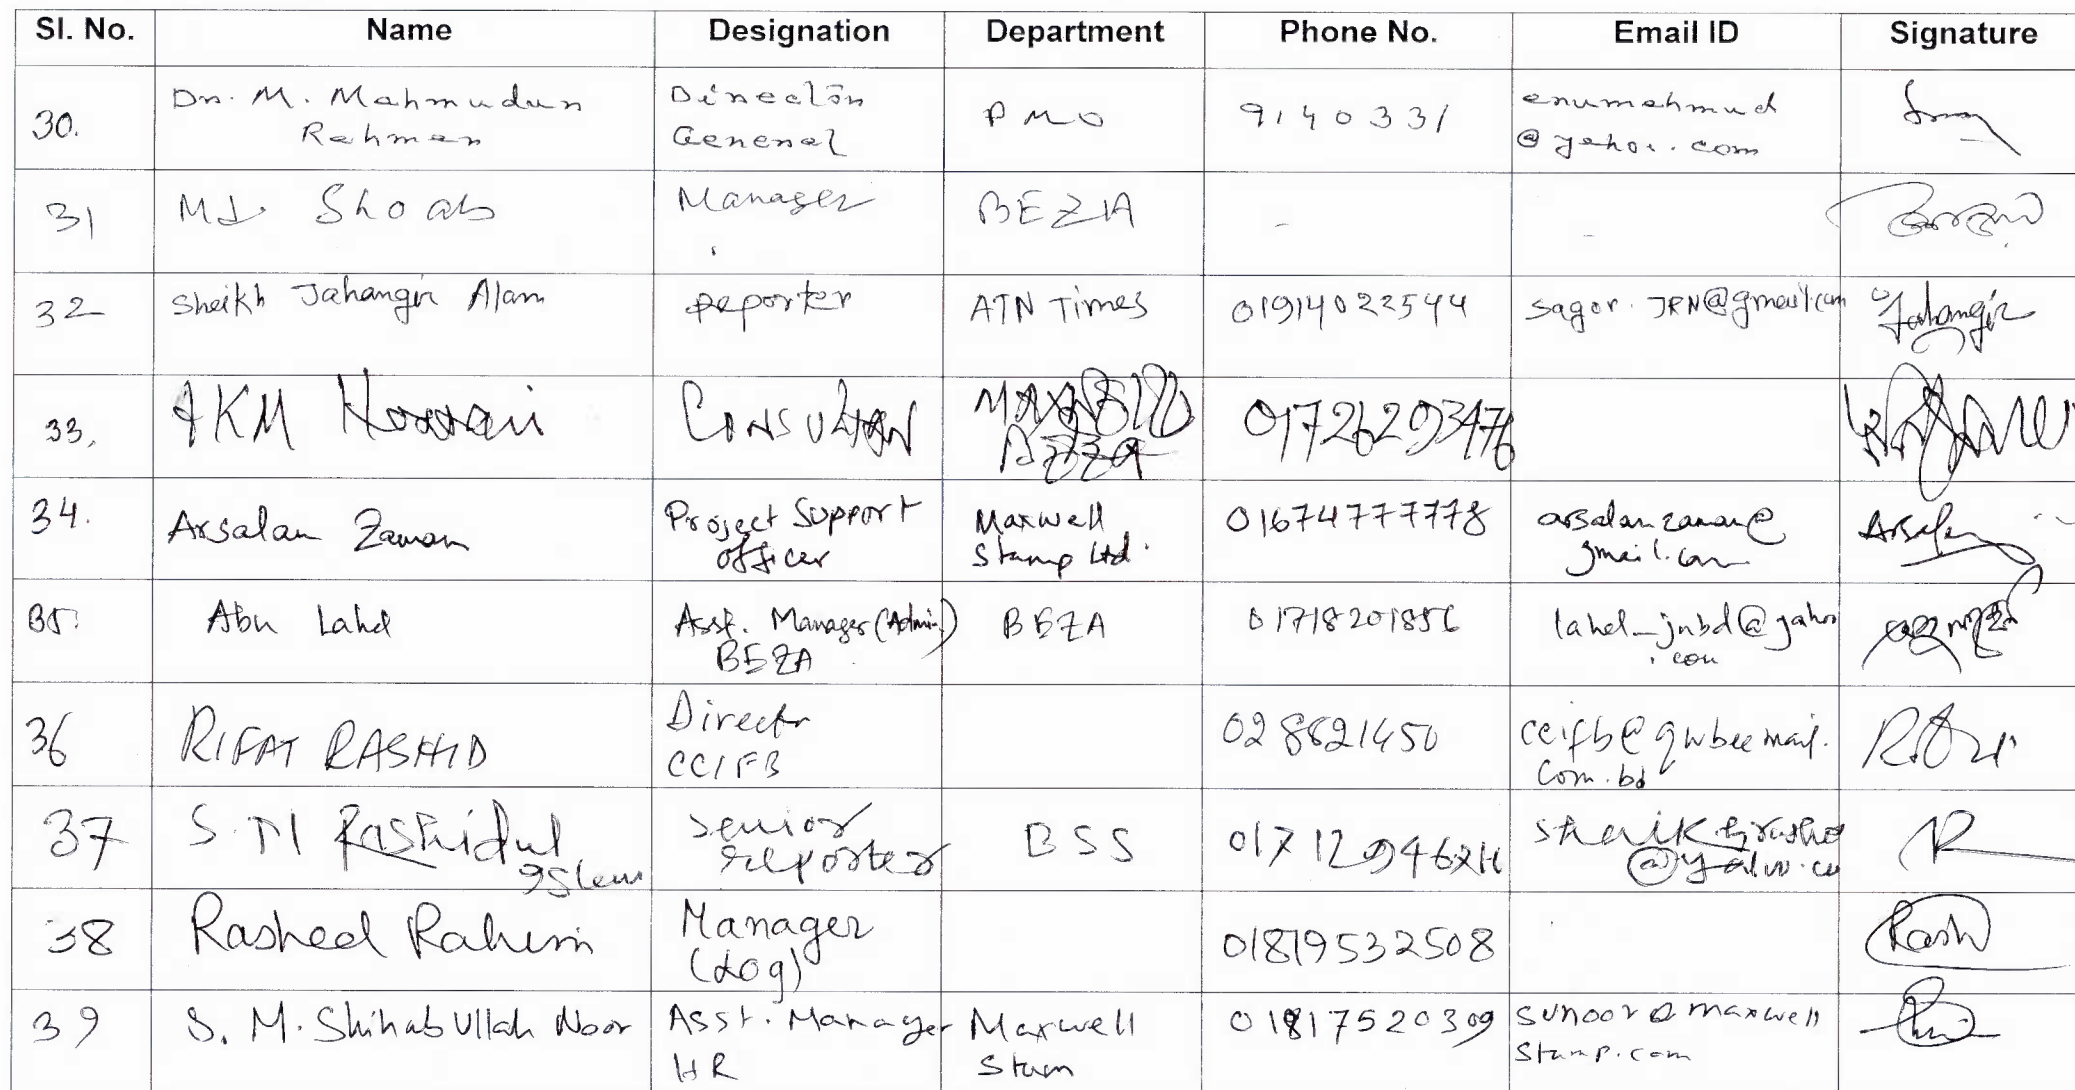 Sl. No. Name Designation Department Phone No. Email ID Signature
30. Dr. M. Mahmudur Rahman Director General PMO 9140331 enumahmud@yahoo.com
31 Md. Shoab Manager BEZA - -
32 Sheikh Jahangir Alam Reporter ATN Times 01914022544 sagor.JRN@gmail.com Jahangir
33. AKM Hossain Consultan 01726293476
34. Arsalan Zaman Project Support Officer Maxwell Stamp Ltd. 01674777778 arsalanzaman@gmail.com Arsalan
35. Abu Lahel Asst. Manager (Admin) BEZA BEZA 01718201856 lahel_jnbd@yahoo.com
36 RIFAT RASHID Director CCIFB 028821450 ccifb@qubeemail.com.bd
37 S. M Rashidul Islam Senior reporter BSS
38 Rasheed Rahim Manager (Log) 01819532508 Rash
39 S. M. Shihab Ullah Noor Asst. Manager HR Maxwell Stam 01817520309 sunoor@maxwellstamp.com